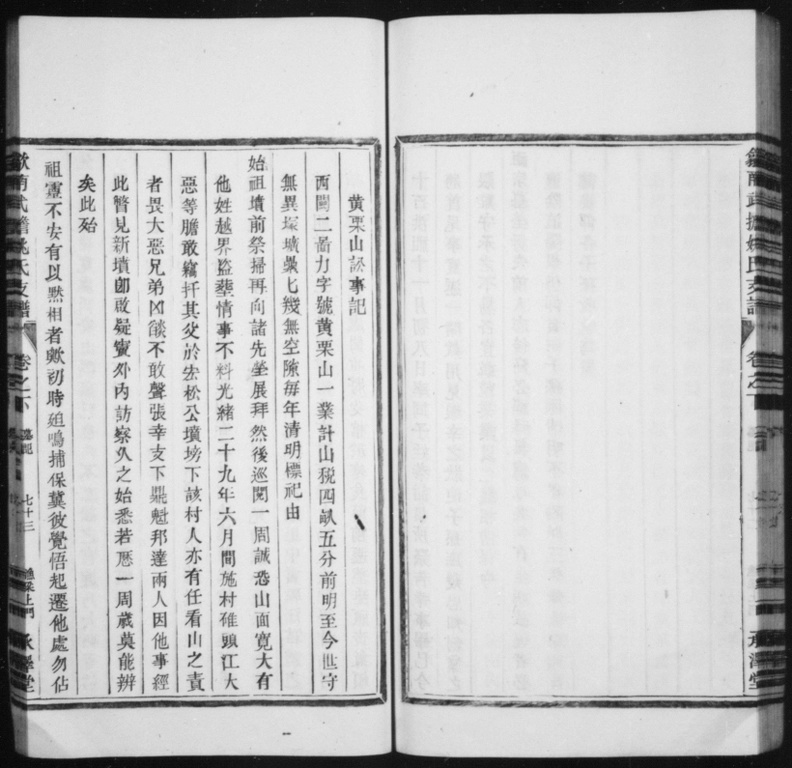 黄栗山訟事記
西關二啚力字號黄栗山一業計山稅四畝五分前明至今世守
無異塚壙纍七幾無空隙每年清明標祀由
始祖墳前祭掃再向諸先塋展拜然後巡閱一周誠恐山面寬大有
他姓越界盜塟情事不料光緒二十九年六月間施村碓頭江大
惡等膽敢竊扦其父於宏松公墳塝下該村人亦有任看山之責
者畏大惡兄弟凶燄不敢聲張幸支下鼎魁邦達兩人因他事經
此瞥見新墳卽啟疑竇外內訪察久之始悉若愿一周歲莫能辨
矣此殆
祖靈不安有以黙相者歟初時廹鳴捕保冀彼覺悟起遷他處勿佔
歙南武擔姚氏支譜
卷之下
墓記
七十三
漁梁上門
承澤堂